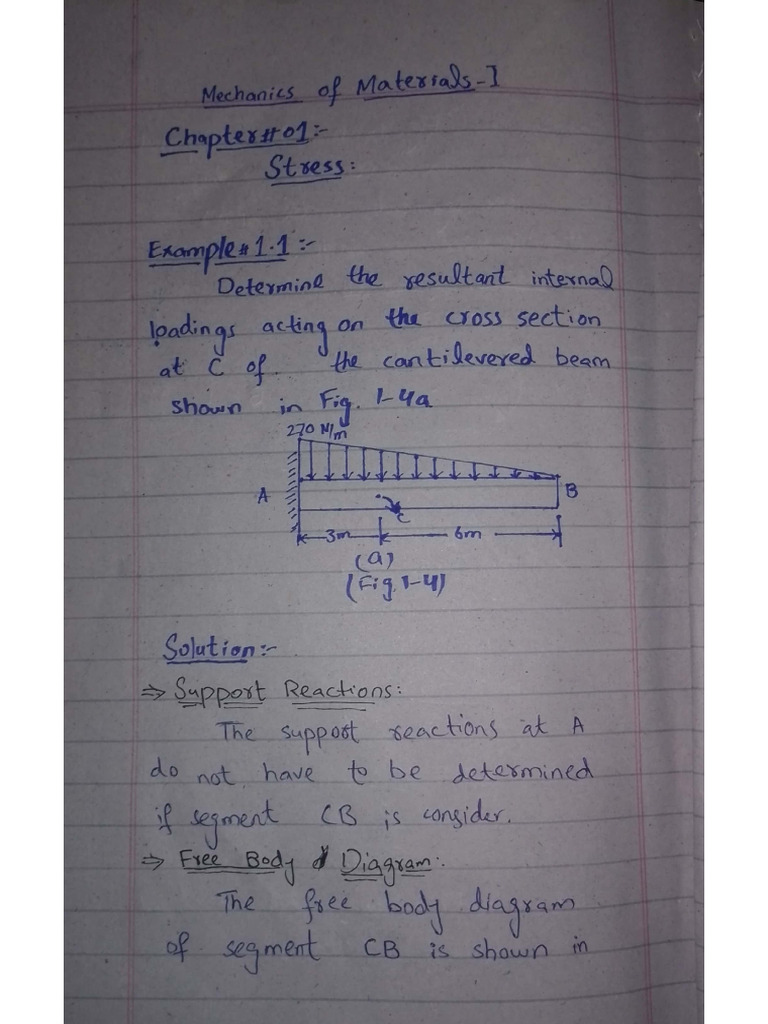 Mechanics of Materials-I
Chapter#01:-
Stress:
Example#1.1:-
Determine the resultant internal
loadings acting on the cross section
at C of. the cantilevered beam
shown in Fig. 1-4a
270 N/m
A
B
C
3m
6m
(a)
(Fig.1-4)
Solution:-
⇒ Support Reactions:
The support reactions at A
do not have to be determined
if segment CB is consider.
⇒ Free Body Diagram:
The free body diagram
of segment CB is shown in